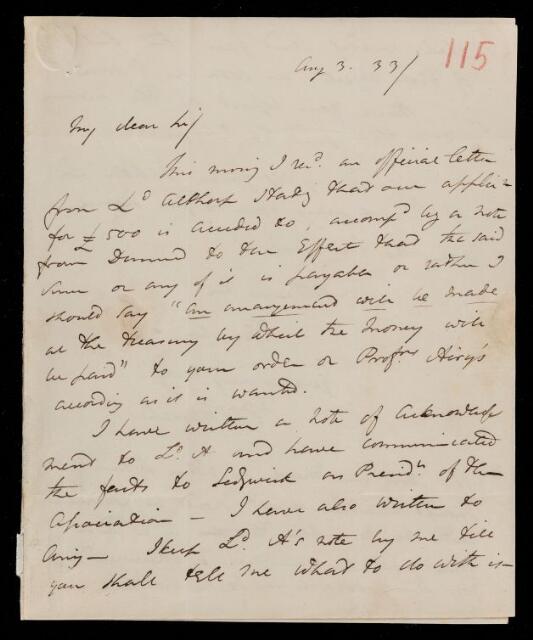 115
Aug 3. 33/
My dear Sir/
This morng I recd. an official letter
from Ld Althorp stating that our applicn
for £500 is acceded to, accompd by a note
from Drummd to the Effect that the said
sum or any of it is payable or rather I
should say "an arrangement will be made
at the Treasury by which the money will
be paid" to your order or Profrs Airy's
according as it is wanted.
I have written a note of acknowledge
ment to Ld. A and have communicated
the facts to Sedgwick as Presidt. of the
Association — I have also written to
Airy — I keep Ld. A's note by me till
you shall tell me what to do with it —